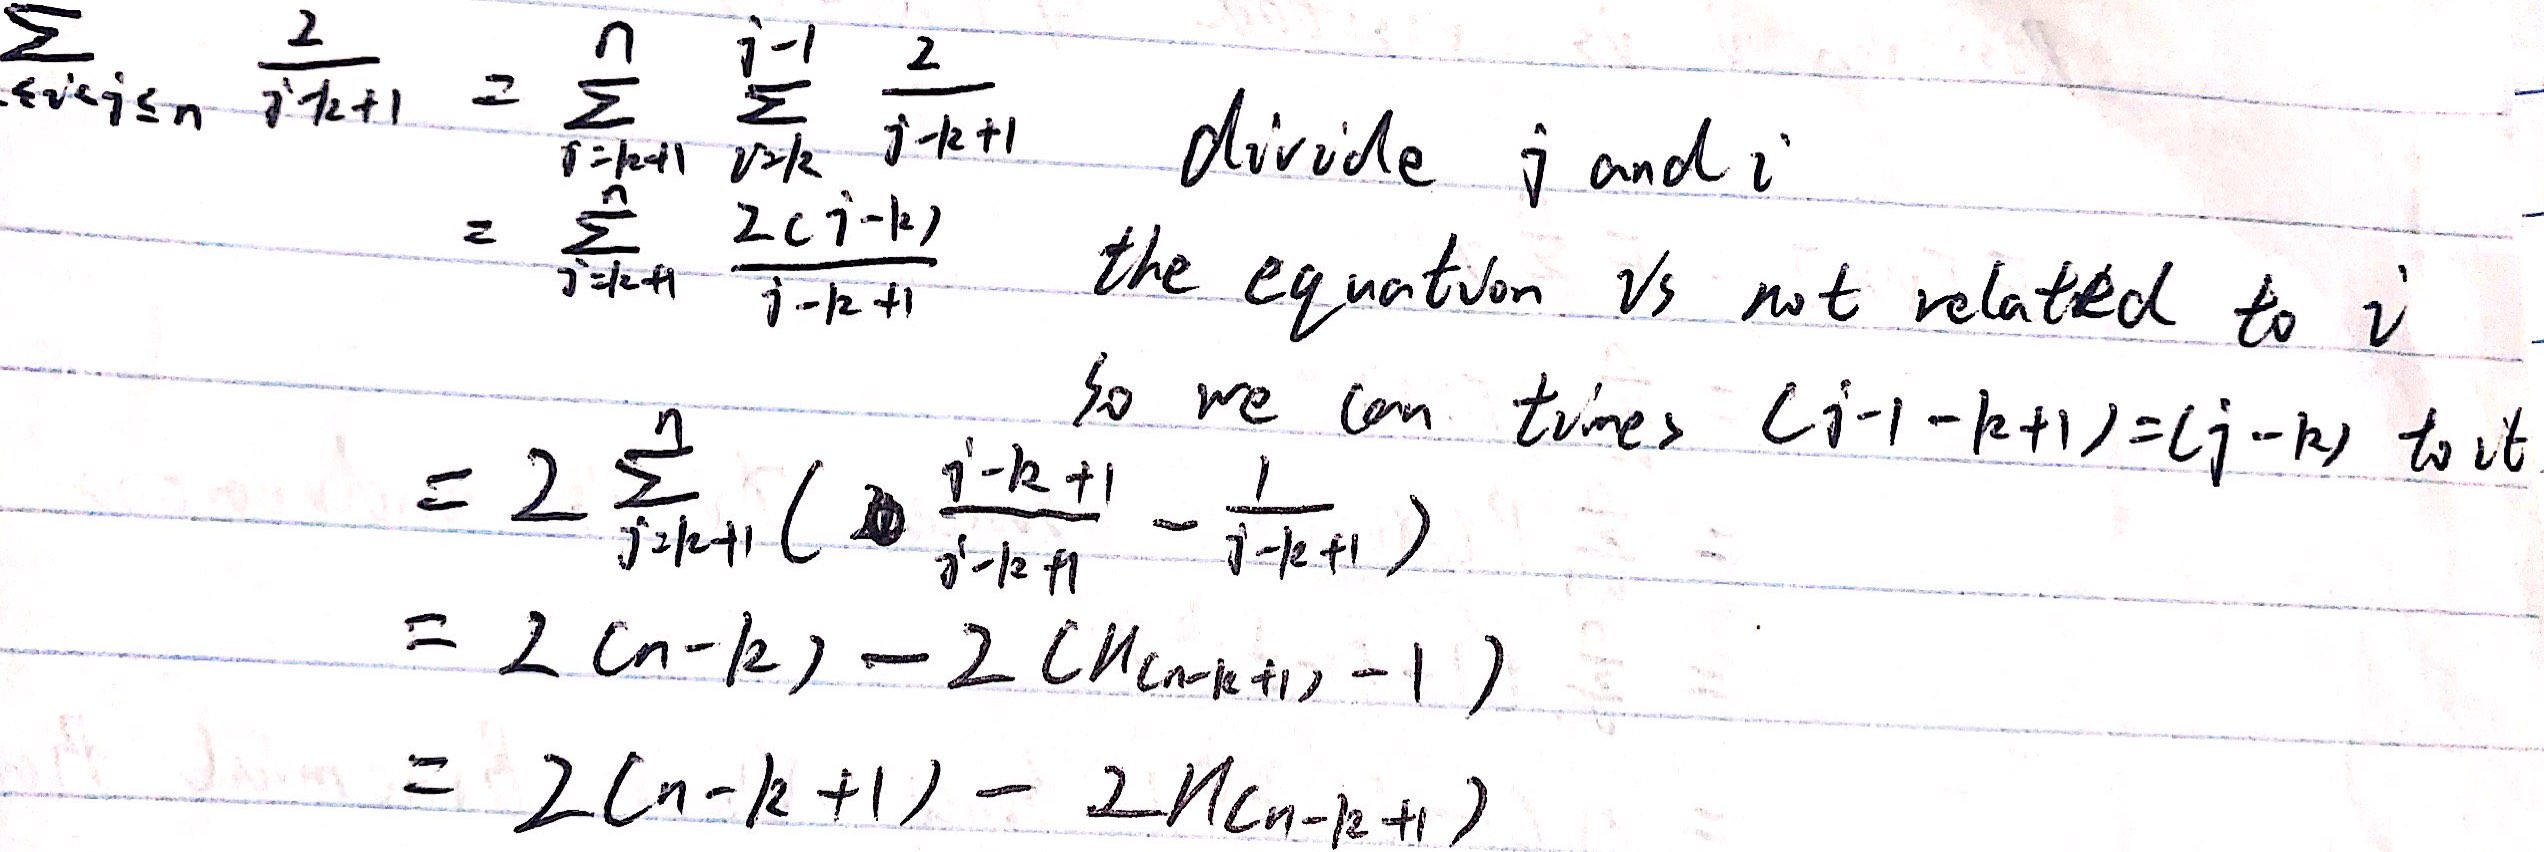 ∑_{≤i<j≤n} 2/(j-k+1) = ∑_{j=k+1}^{n} ∑_{i=k}^{j-1} 2/(j-k+1) divide j and i
= ∑_{j=k+1}^{n} 2(j-k)/(j-k+1) the equation is not related to i
so we can times (j-1-k+1)=(j-k) to it.
= 2 ∑_{j=k+1}^{n} ( (j-k+1)/(j-k+1) - 1/(j-k+1) )
= 2(n-k) - 2(H_{(n-k+1)} - 1)
= 2(n-k+1) - 2H_{(n-k+1)}